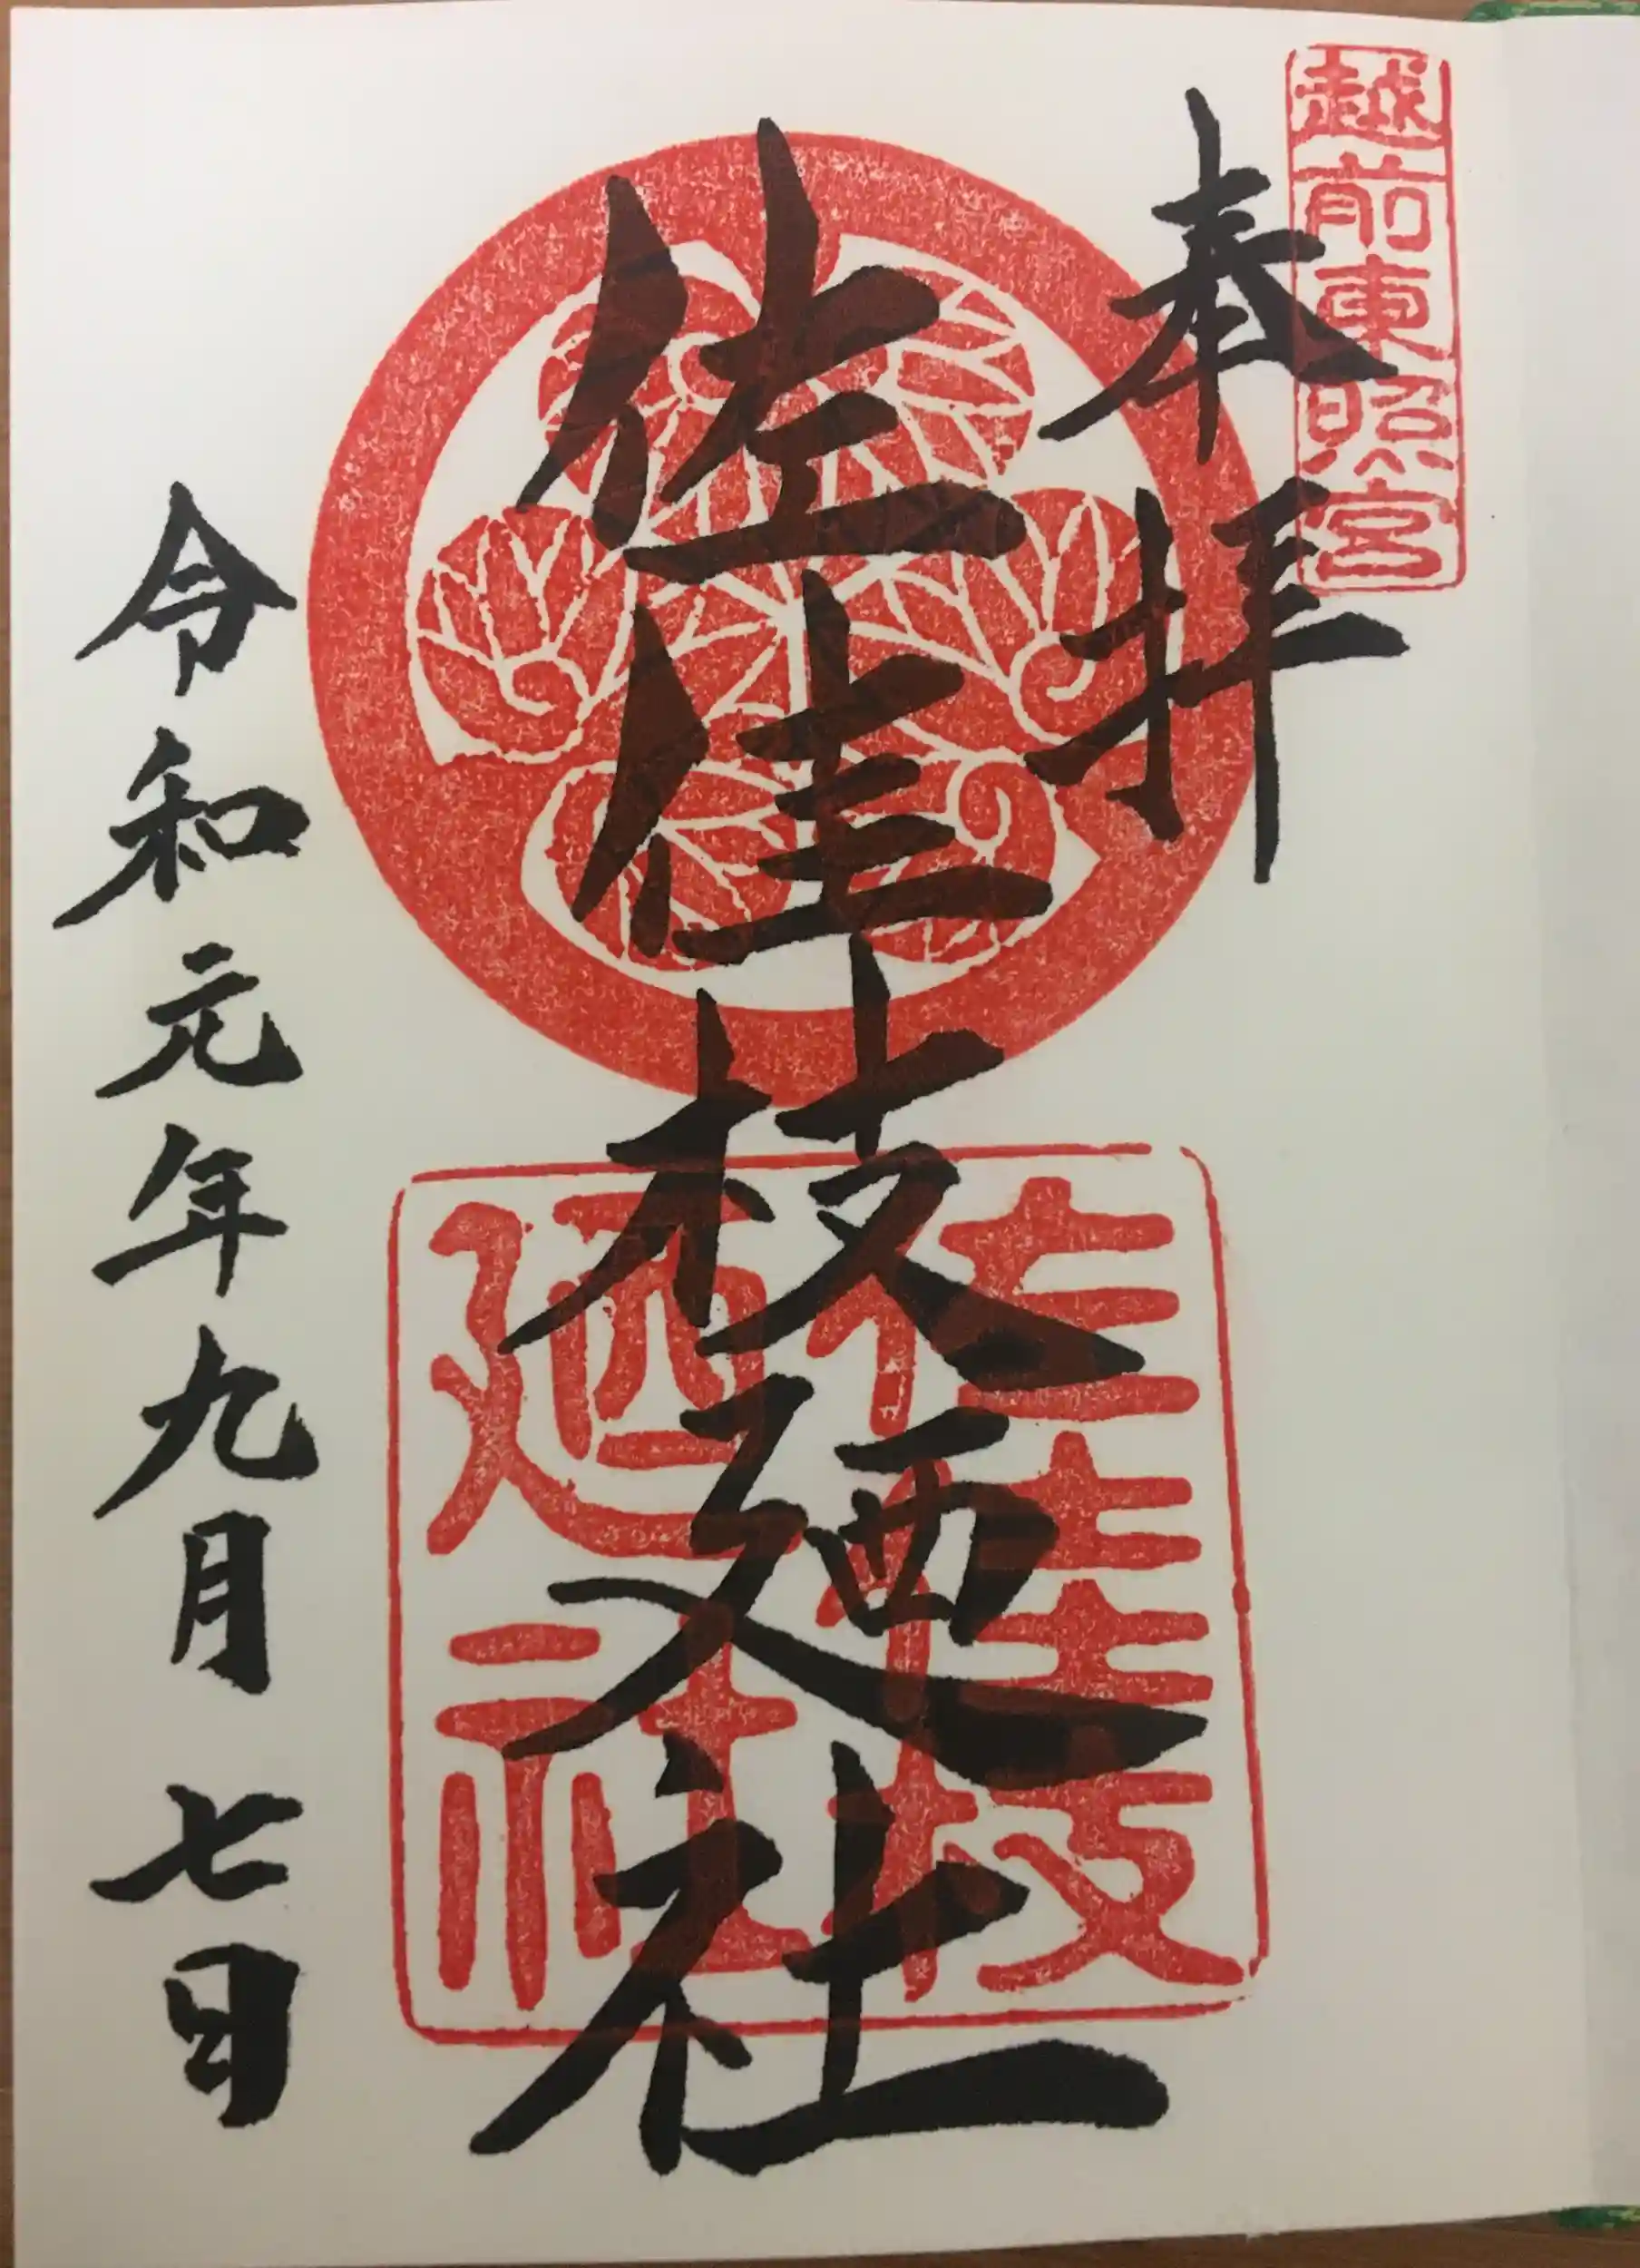 越前東照宮
奉拝
佐佳枝廼社
佳佳枝
廼社
令和元年九月七日